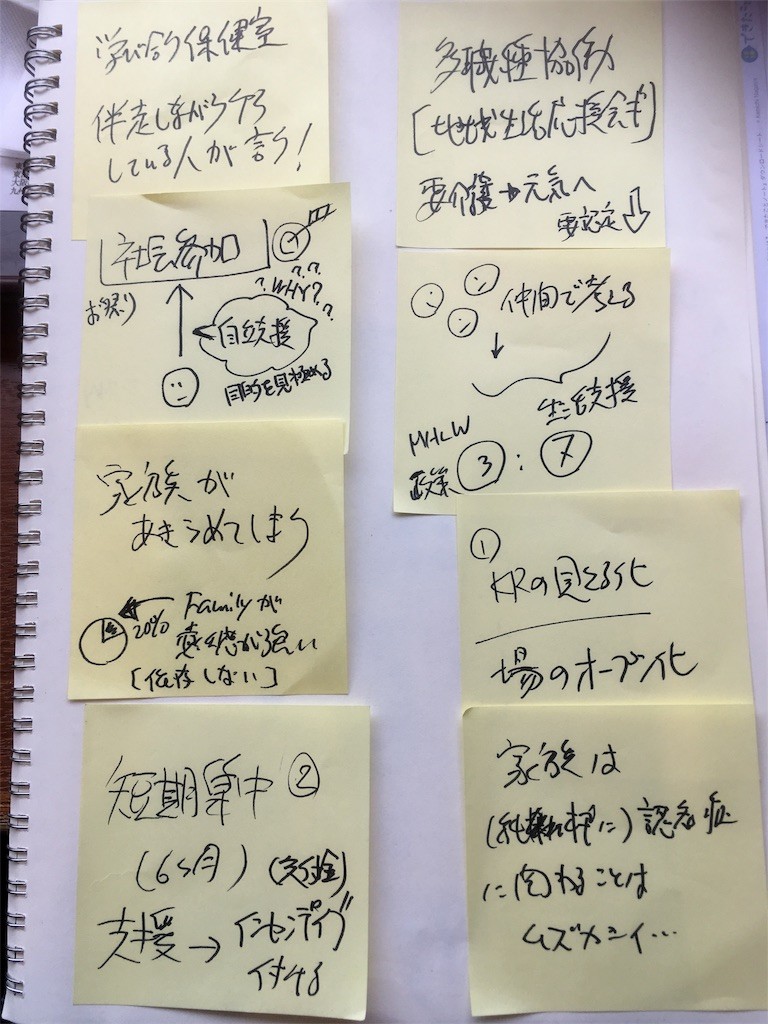 学び合う保健室
伴走しながらケア
している人が言う!
社会参加
お祭り
?WHY?
自立支援
目的を見極める
家族が
あきらめてしまう
20% Familyが
意志が強い
[依存しない]
短期集中 ②
(6ヶ月) (交付金)
支援→インセンティブ
付ける
多職種協働
[地域生活応援会議]
要介護→元気へ
要認定
仲間で考える
生活支援
MHLW
政策 ③:⑦
①
KRの見える化
場のオープン化
家族は
(純粋に)認知症
に関わることは
ムズカシイ…